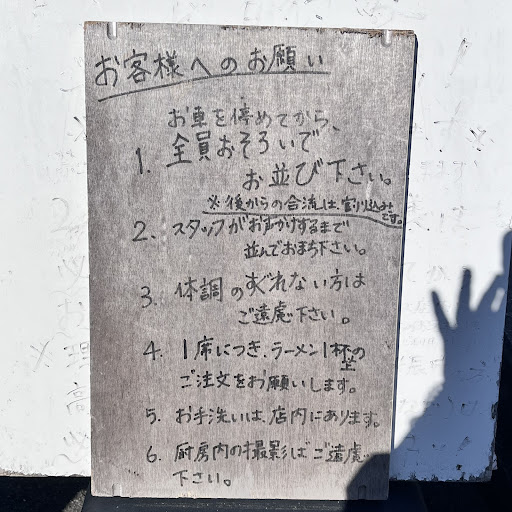 お客様へのお願い
お車を停めてから、
1. 全員おそろいで
お並び下さい。
※後からの合流は、割り込み
です。
2. スタッフがお声かけするまで
並んでおまち下さい。
3. 体調のすぐれない方は
ご遠慮下さい。
4. 1席につき、ラーメン1杯の
ご注文をお願いします。
5. お手洗いは、店内にあります。
6. 厨房内の撮影はご遠慮
下さい。